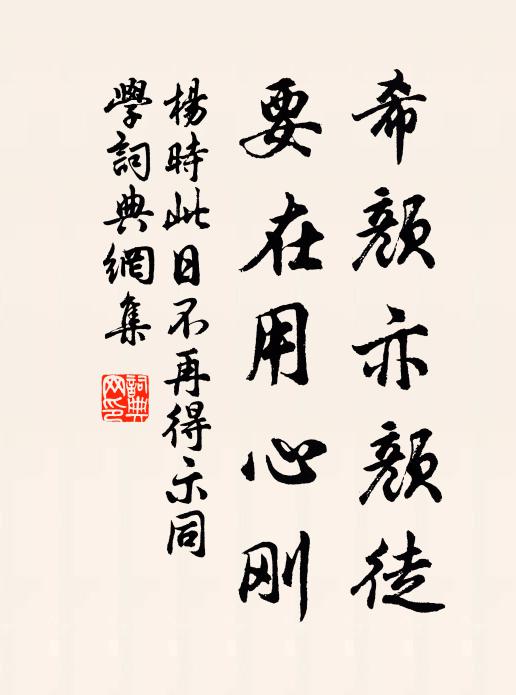 希顔亦顔徒
要在用心刚
楊時此日不再得示同
學詞典網集
詞典网印